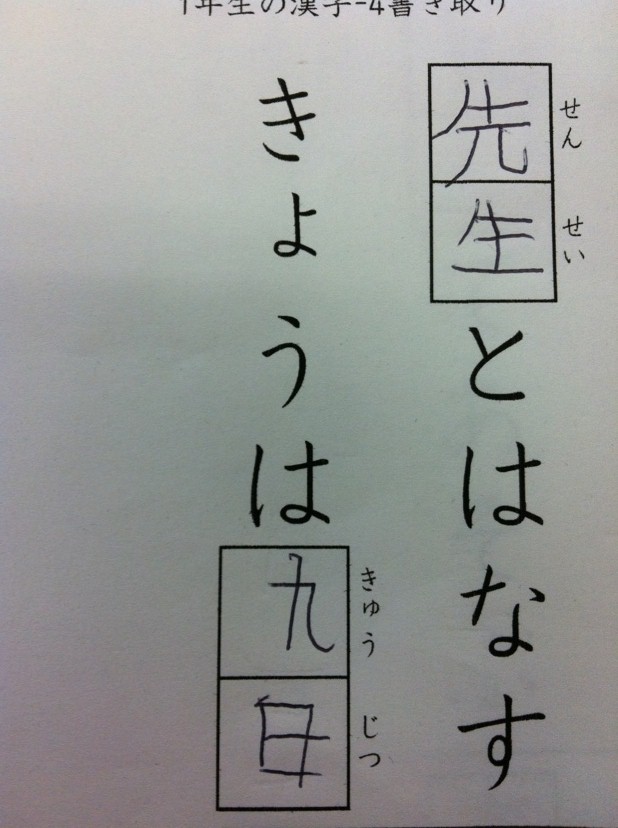 1年生の漢字-4書き取り
先生とはなす
せんせい
きょうは九日
きゅうじつ